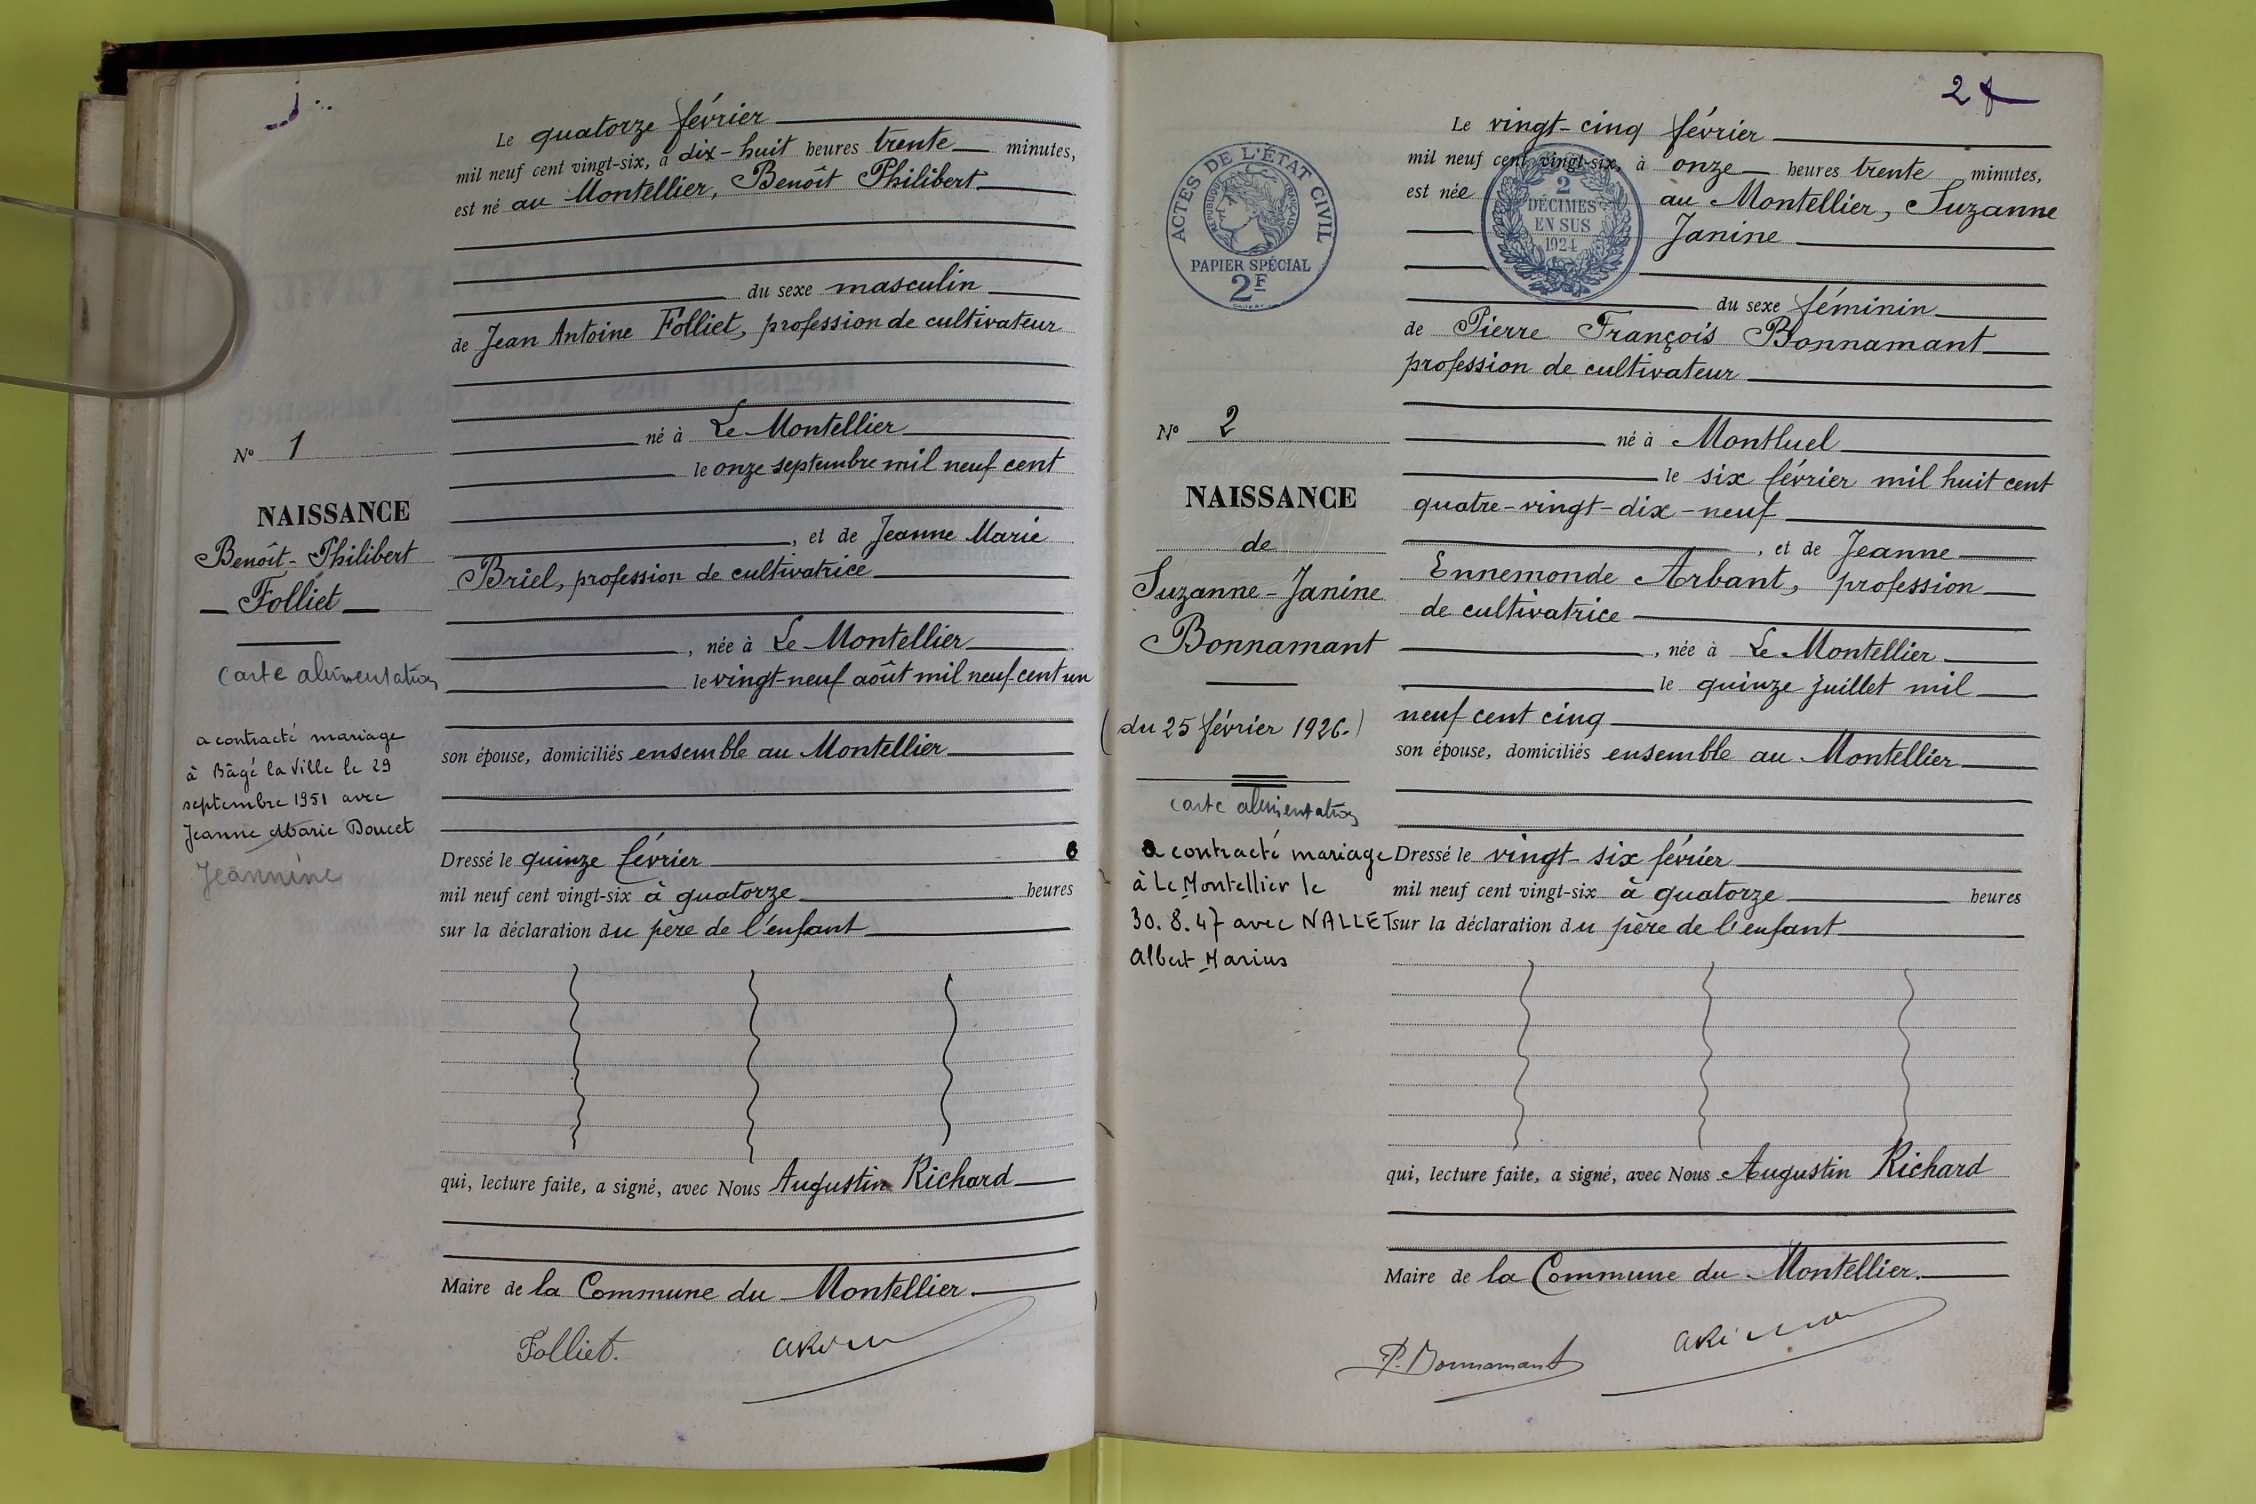 Le quatorze février
mil neuf cent vingt-six, à dix-huit heures trente minutes,
est né au Montellier, Benoît Philibert
du sexe masculin
de Jean Antoine Folliet, profession de cultivateur
né à Le Montellier
le onze septembre mil neuf cent
, et de Jeanne Marie
Briel, profession de cultivatrice
, née à Le Montellier
le vingt-neuf août mil neuf cent un
son épouse, domiciliés ensemble au Montellier
Dressé le quinze février
mil neuf cent vingt-six à quatorze heures
sur la déclaration du père de l'enfant
qui, lecture faite, a signé, avec Nous Augustin Richard
Maire de la Commune du Montellier.
Folliet.
N° 1
NAISSANCE
Benoît-Philibert
Folliet
carte alimentation
a contracté mariage
à Bâgé la Ville le 29
septembre 1951 avec
Jeanne Marie Doucet
Jeannine
2
ACTES DE L'ÉTAT CIVIL
RÉPUBLIQUE FRANÇAISE
PAPIER SPÉCIAL
2F
2
DÉCIMES
EN SUS
1924
Le vingt-cinq février
mil neuf cent vingt-six, à onze heures trente minutes,
est née au Montellier, Suzanne
Janine
du sexe féminin
de Pierre François Bonnamant
profession de cultivateur
né à Montluel
le six février mil huit cent
quatre-vingt-dix-neuf
, et de Jeanne
Ennemonde Arbant, profession
de cultivatrice
, née à Le Montellier
le quinze juillet mil
neuf cent cinq
son épouse, domiciliés ensemble au Montellier
Dressé le vingt-six février
mil neuf cent vingt-six à quatorze heures
sur la déclaration du père de l'enfant
qui, lecture faite, a signé, avec Nous Augustin Richard
Maire de la Commune du Montellier.
P. Bonnamant
N° 2
NAISSANCE
de
Suzanne-Janine
Bonnamant
(du 25 février 1926.)
carte alimentation
a contracté mariage
à Le Montellier le
30.8.47 avec NALLET
Albert Marius